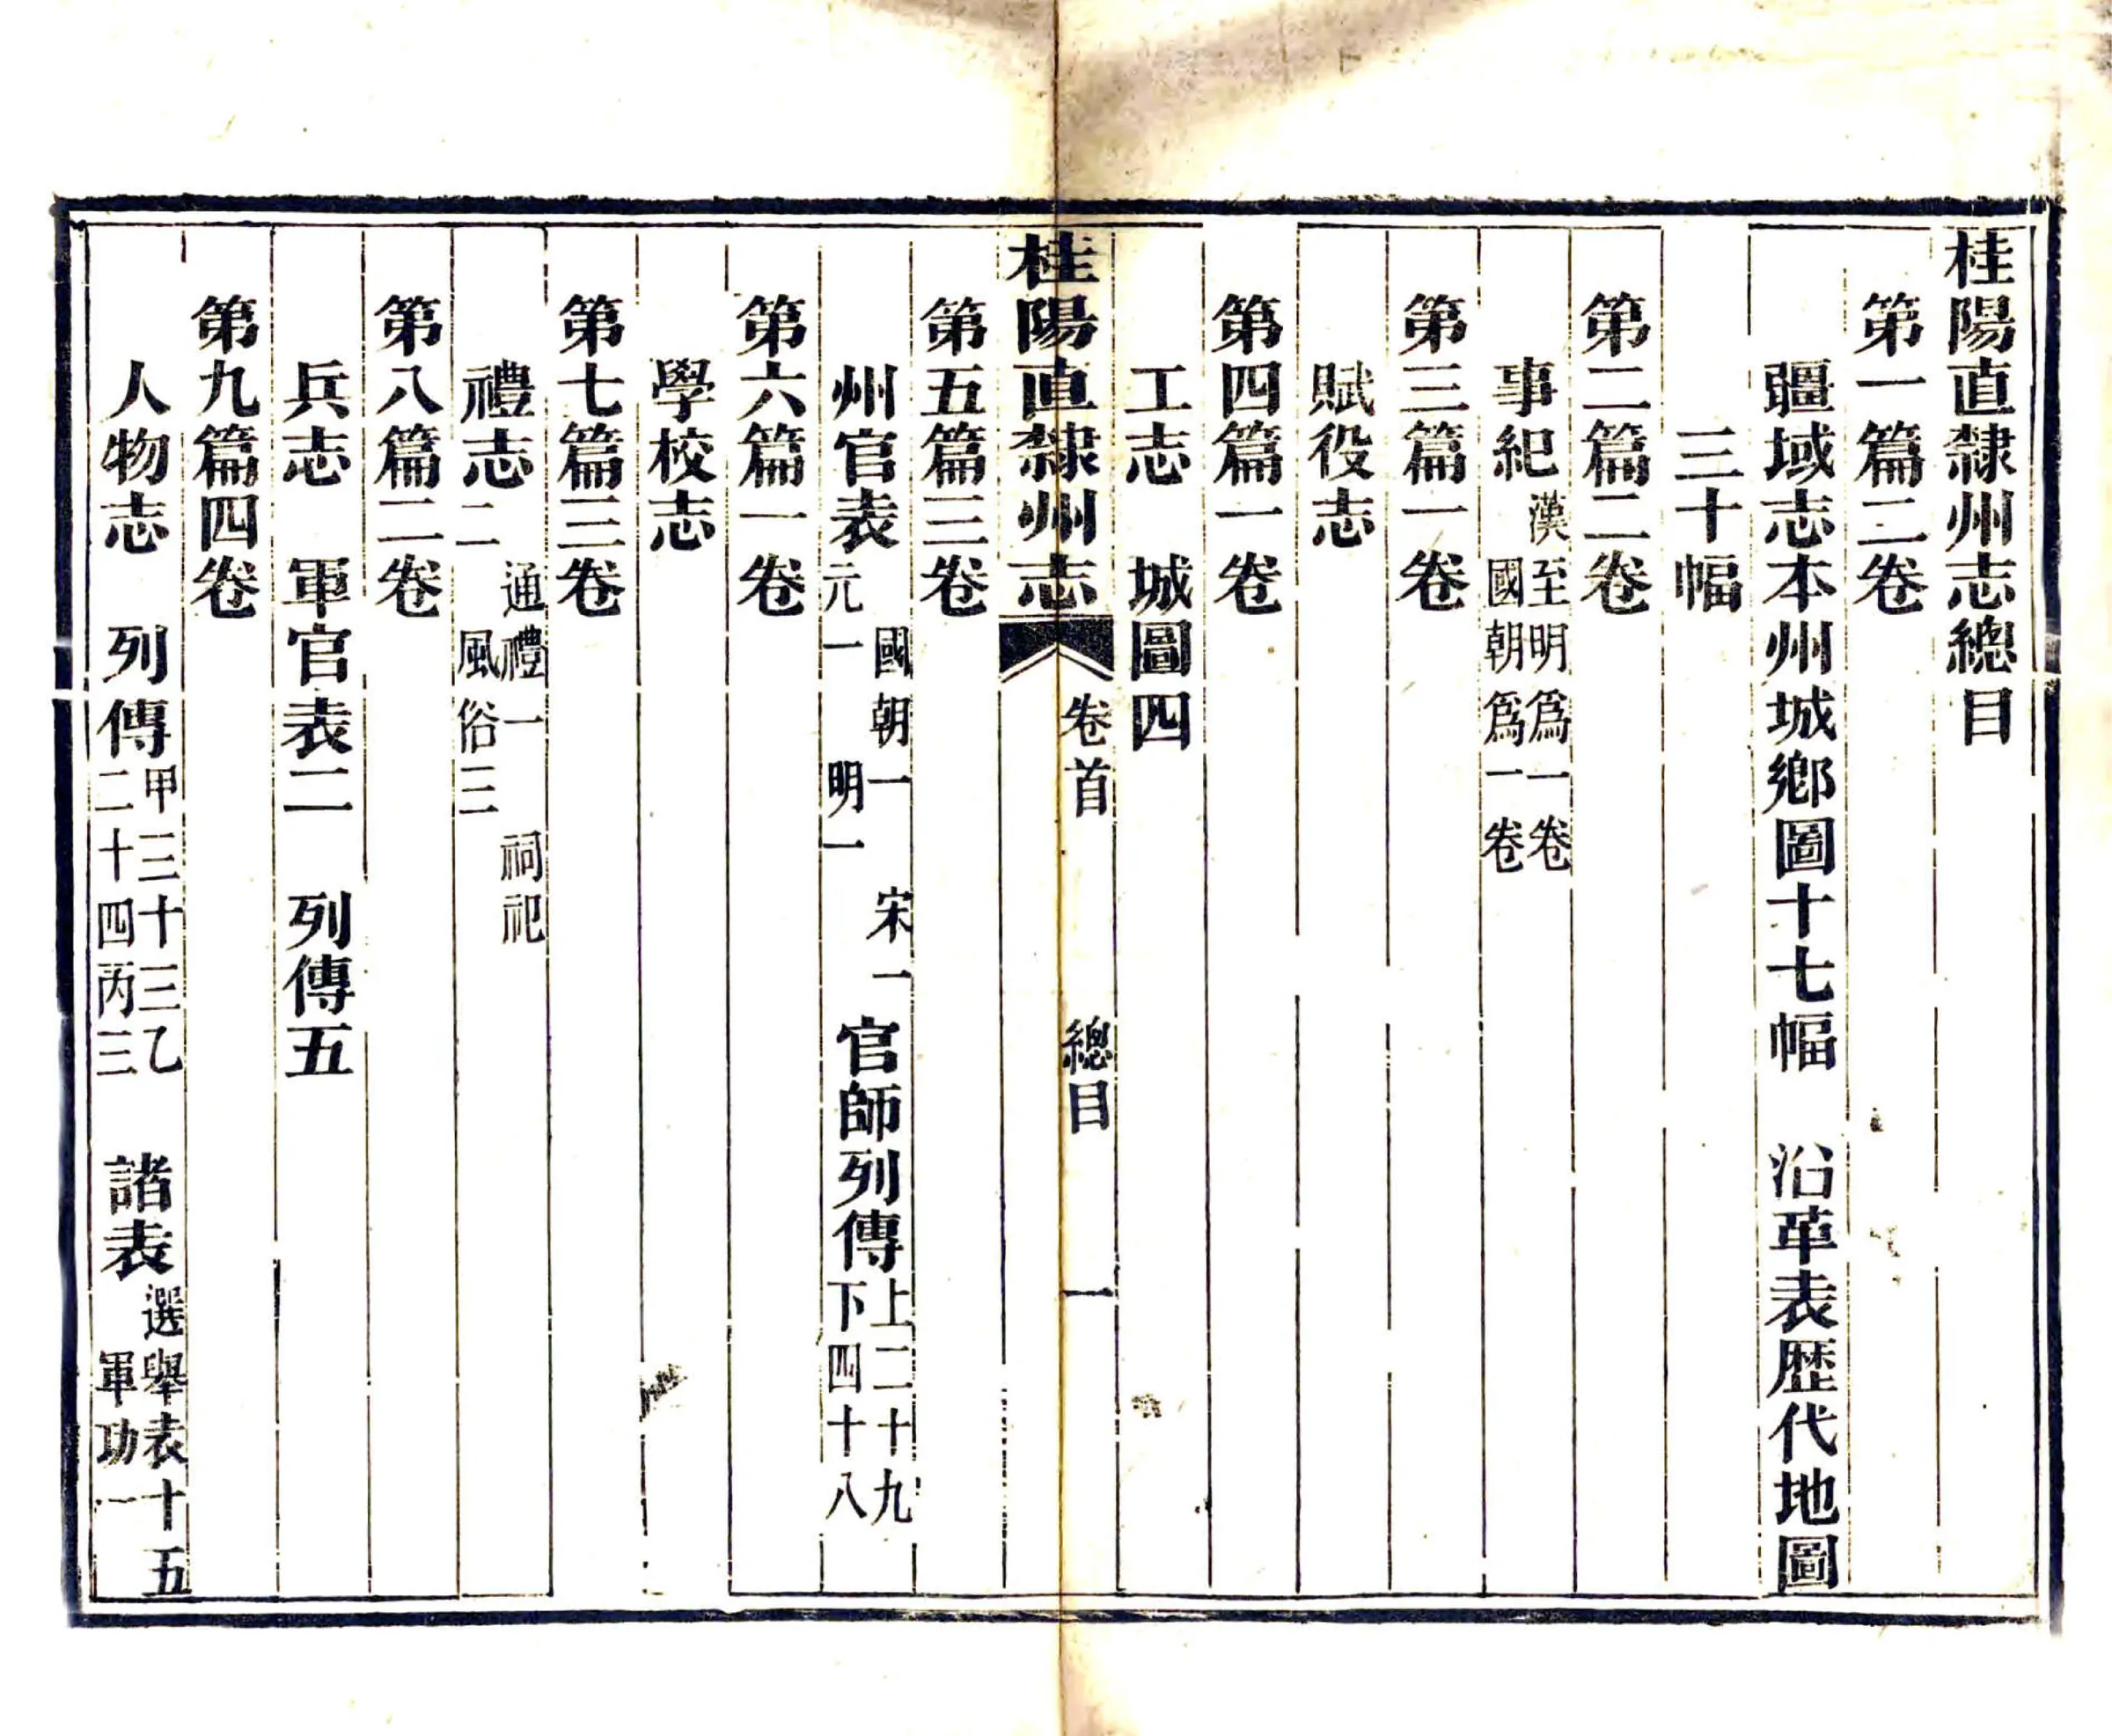 桂陽直隸州志總目
第一篇二卷
疆域志本州城鄉圖十七幅　沿革表歷代地圖
三十幅
第二篇二卷
事紀漢至明爲一卷
國朝爲一卷
第三篇一卷
賦役志
第四篇一卷
工志　城圖四
桂陽直隸州志　卷首　總目　一
第五篇三卷
州官表　國朝一　宋一
元一　明一
官師列傳上二十九
下四十八
第六篇一卷
學校志
第七篇三卷
禮志　通禮一　祠祀
二　風俗三
第八篇二卷
兵志　軍官表二　列傳五
第九篇四卷
人物志　列傳甲三十三乙
二十四丙三
諸表選舉表十五
軍功一